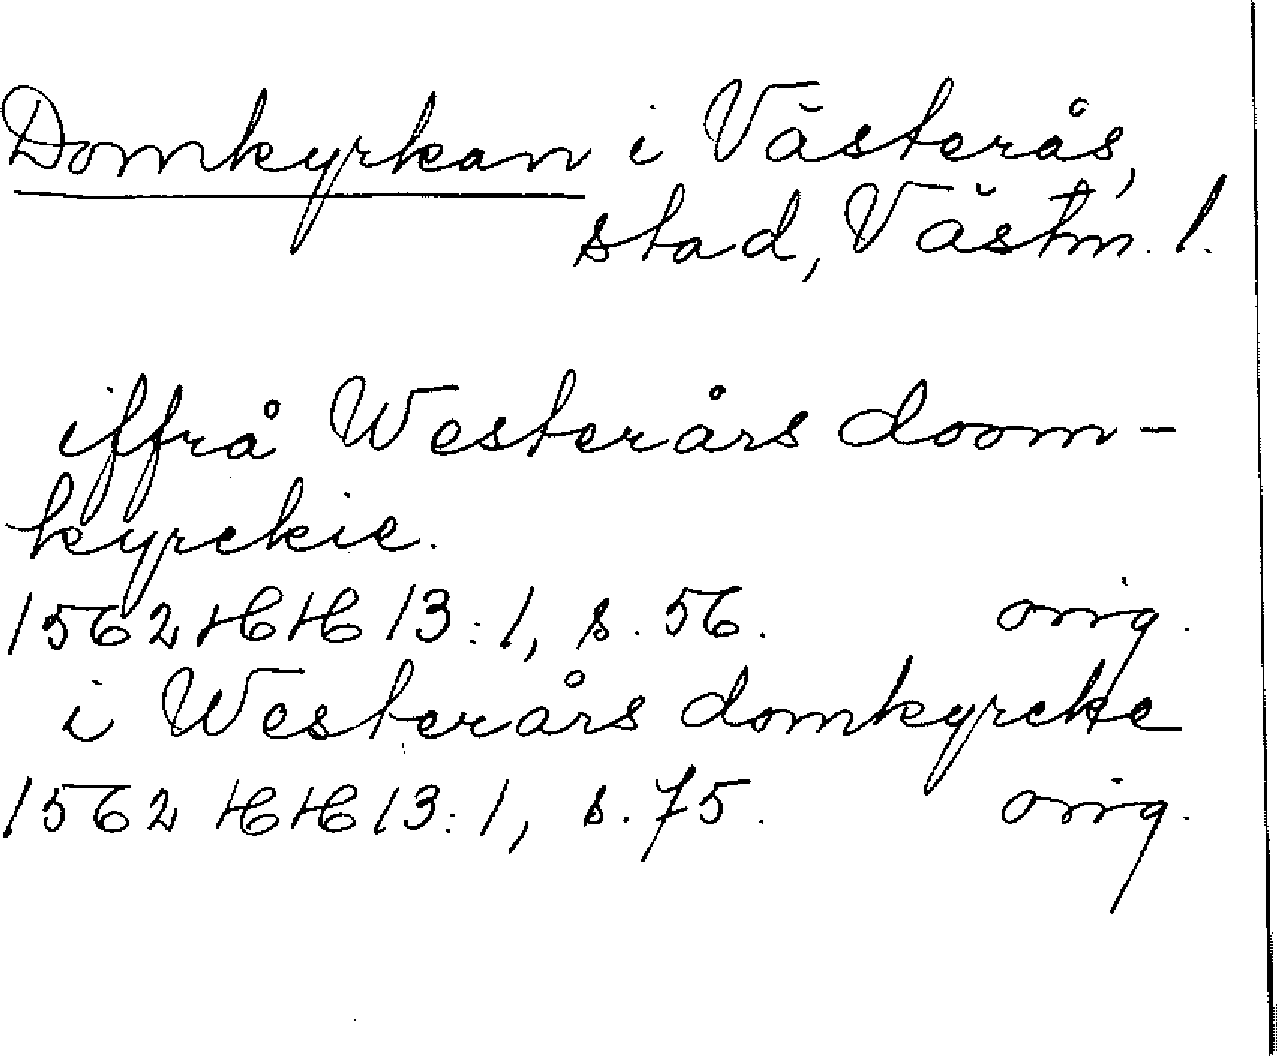 Domkyrkan i Västerås,
stad, Västm. l.
iffrå Westerårs doom-
kyrckie.
1562 HH 13:1, s. 56. orig.
i Westerårs domkyrcke
1562 HH 13:1, s. 75. orig.